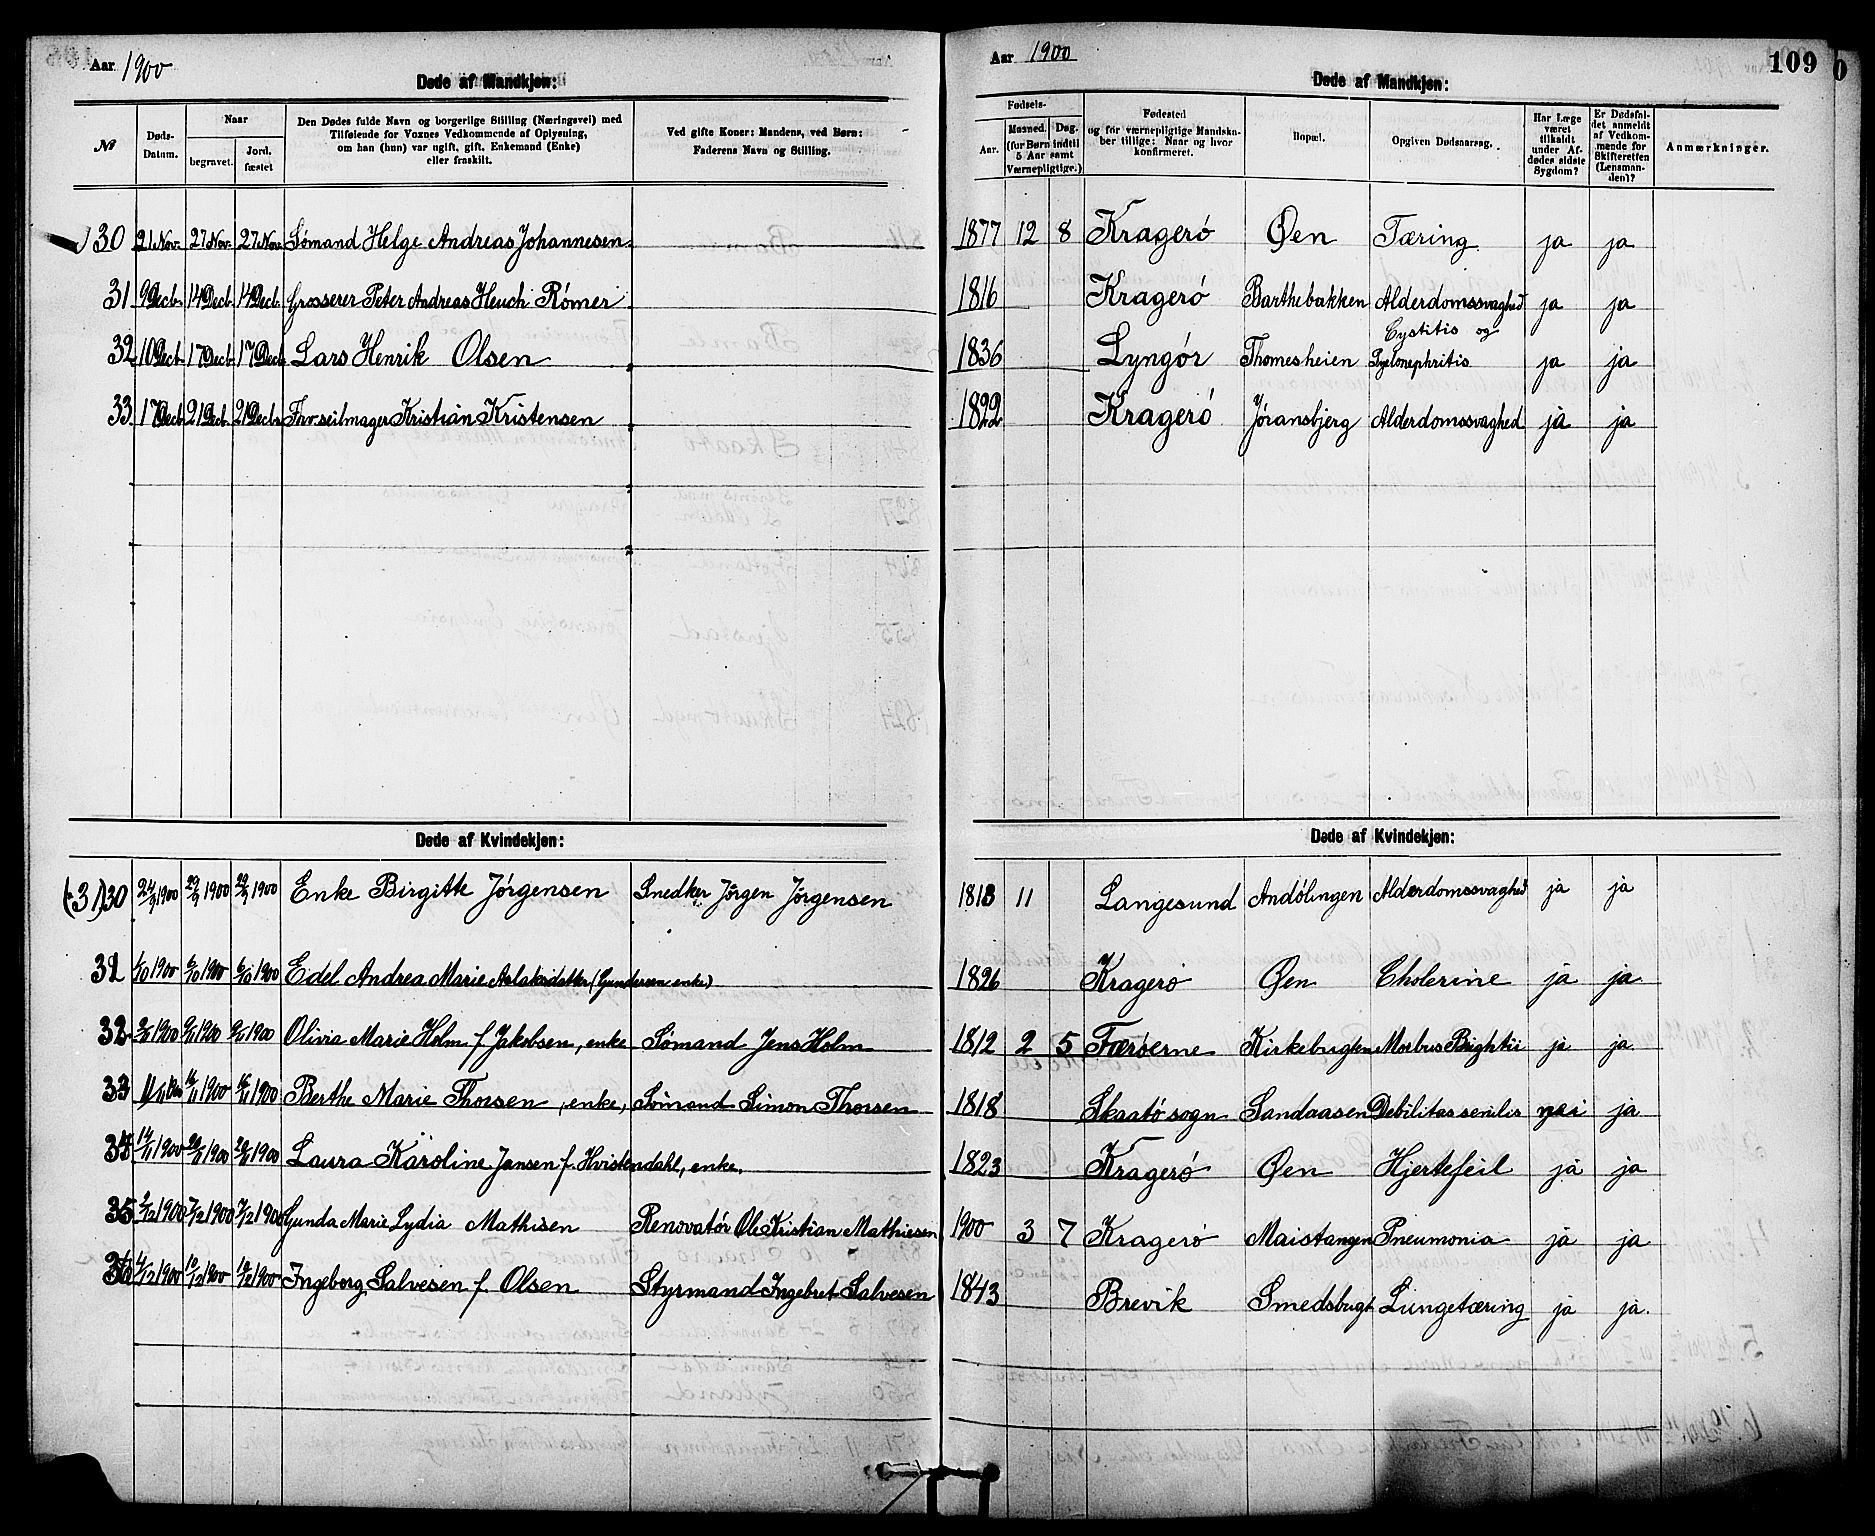 Aar 1900
Døde af Mandkjøn:
№
Døds-Datum.
Naar
begravet.
Jord-fæstet
Den Dødes fulde Navn og borgerlige Stilling (Næringsvei) med
Tilføiende for Voxnes Vedkommende af Oplysning,
om han (hun) var ugift, gift, Enkemand (Enke)
eller fraskilt.
Ved gifte Koner: Mandens, ved Børn:
Faderens Navn og Stilling.
30 21 Nov. 27 Nov. 27 Nov. Sømand Helge Andreas Johannesen
31 9 Decb. 14 Decb. 14 Decb. Grosserer Peter Andreas Heuch Rømer
32 10 Decb. 17 Decb. 17 Decb. Lars Henrik Olsen
33. 17 Decb. 21 Decb. 21 Decb. Fhv. seilmager Kristian Kristensen
Døde af Kvindekjøn:
(31) 30 24/9 1900 29/9 1900 29/9 1900 Enke Birgitte Jørgensen Snedker Jørgen Jørgensen
1/10 1900 6/10 1900 6/10 1900 Edel Andrea Marie Aslaksdatter (Gundersen enke)
1900 1900 1900 Olivia Marie Holm f Jakobsen, enke Sømand Jens Holm
33 16/11 1900 16/11 1900 Berthe Marie Thorsen, enke, Sømand Simon Thorsen
34 14/11 1900 20/11 1900 20/11 1900 Laura Karoline Jansen f. Hvistendahl, enke.
35 2/12 1900 7/12 1900 7/12 1900 Gunda Marie Lydia Mathisen Renovatør Ole Kristian Mathiesen
36 4/12 1900 10/12 1900 10/12 1900 Ingeborg Salvesen f. Olsen Styrmand Ingebret Salvesen
Aar 1900
109
Døde af Mandkjøn:
Fødsels-
Aar.
Maaned. Dag.
(for Børn indtil
5 Aar samt
Værnepligtige.)
Fødested
og for værnepligtige Mandska-
ber tillige: Naar og hvor
konfirmeret.
Bopæl.
Opgiven Dødsaarsag.
Har Læge
været
tilkaldt
under Af-
dødes sidste
Sygdom?
Er Dødsfal-
det anmeldt
af Vedkom-
mende for
Skifteretten
(Lensman-
den)?
Anmærkninger.
1877 12 8 Kragerø Øen Tæring ja ja
1816 Kragerø Barthebakken Alderdomssvaghed ja ja
1836 Lyngør Thomesheien Cystitis og
Pyelonephritis ja ja
1822 Kragerø Jøransbjerg Alderdomssvaghed ja ja
Døde af Kvindekjøn:
1813 11 Langesund Andølingen Alderdomssvaghed ja ja
1826 Kragerø Øen Cholerine ja ja
1812 2 5 Færøerne Kirkebugten Morbus Brightii ja ja
1818 Skaatø sogn Sandaasen Debilitas senilis nei ja
1823 Kragerø Øen Hjertefeil ja ja
1900 3 7 Kragerø Maistangen Pneumonia ja ja
1843 Brevik Smedsbugt Lungetæring ja ja.